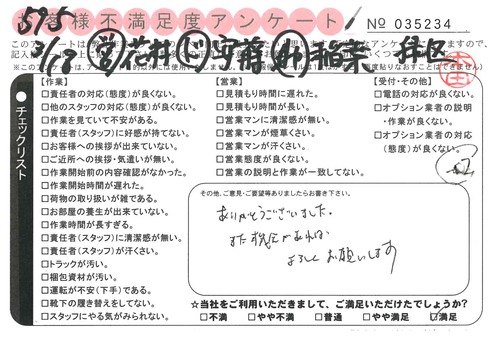 お客様不満足度アンケート
No 035234
575
3/8 営 花井
【作業】
□責任者の対応(態度)が良くない。
□他のスタッフの対応(態度)が良くない。
□作業を見ていて不安がある。
□責任者(スタッフ)に好感が持てない。
□お客様への挨拶が出来ていない。
□ご近所への挨拶・気遣いが無い。
□作業開始前の内容確認がなかった。
□作業開始時間が遅れた。
□荷物の取り扱いが雑である。
□お部屋の養生が出来ていない。
□作業時間が長すぎる。
□責任者(スタッフ)に清潔感が無い。
□責任者(スタッフ)が汗くさい。
□トラックが汚い。
□梱包資材が汚い。
□運転が不安(下手)である。
□靴下の履き替えをしてない。
□スタッフにやる気がみられない。
チェックリスト
【営業】
□見積もり時間に遅れた。
□見積もり時間が長い。
□営業マンに清潔感が無い。
□営業マンが煙草くさい。
□営業マンが汗くさい。
□営業態度が良くない。
□営業の説明と作業が一致してない。
【受付・その他】
□電話の対応が良くない。
□オプション業者の説明
・作業が良くない。
□オプション業者の対応
(態度)が良くない。
その他、ご意見・ご要望等ありましたらお書き下さい。
ありがとうございました。
また機会があれば
よろしくお願いします
☆当社をご利用いただきまして、ご満足いただけたでしょうか?
□不満 □やや不満 □普通 □やや満足 □満足